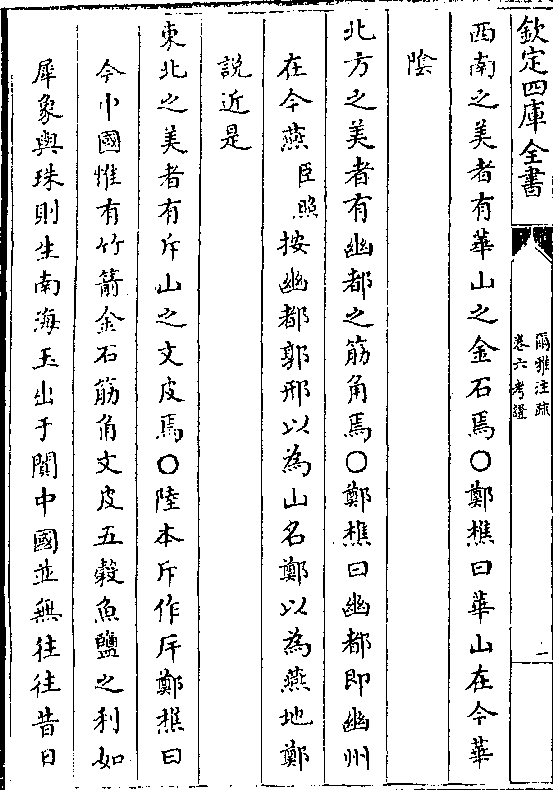 欽定四庫全書
爾雅注疏
卷六考證
二
西南之美者有華山之金石焉○鄭樵曰華山在今華
陰
北方之美者有幽都之筋角焉○鄭樵曰幽都即幽州
在今燕臣照按幽都郭邢以為山名鄭以為燕地鄭
說近是
東北之美者有斥山之文皮焉○陸本斥作㡿鄭樵曰
今中國惟有竹箭金石筋角文皮五穀魚鹽之利如
犀象與珠則生南海玉出于闐中國並無往往昔日